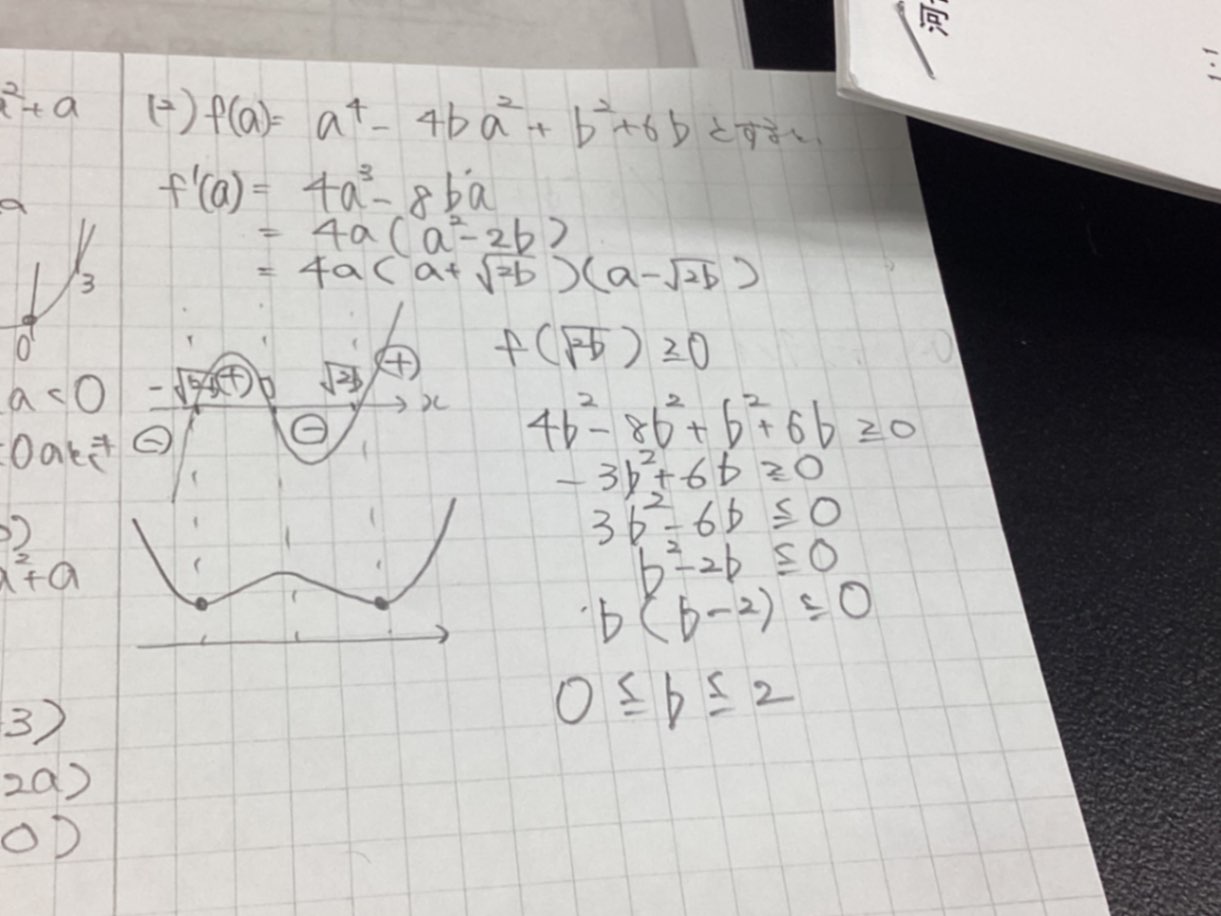 a²+a
a
3
0
a<0
b)
a²+a
3)
2a)
0)
(2) f(a)= a⁴- 4ba²+ b²+6b とする。
f'(a)= 4a³- 8ba
= 4a(a²-2b)
= 4a(a+√2b)(a-√2b)
-√2b
+
0
√2b
+
x
-
-
f(√2b)≧0
4b²-8b²+b²+6b≧0
-3b²+6b≧0
3b²-6b≦0
b²-2b≦0
b(b-2)≦0
0≦b≦2
河
1.1